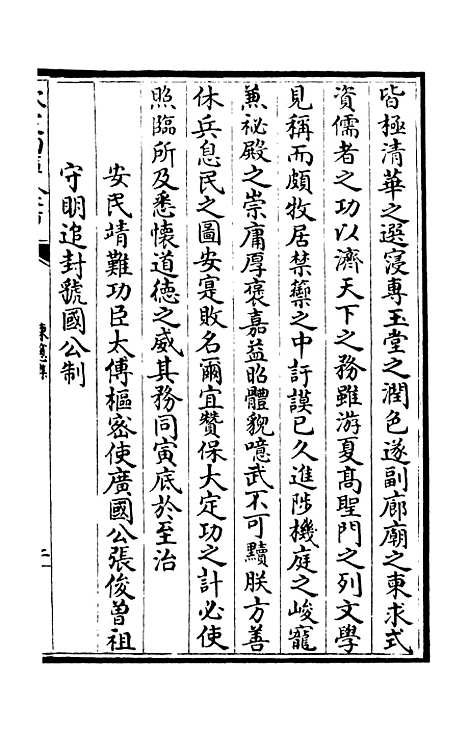 皆極清華之選寖專玉堂之潤色遂副廊廟之柬求式
資儒者之功以濟天下之務雖游夏髙聖門之列文學
見稱而頗牧居禁籞之中訏謨已久進陟機庭之峻寵
兼祕殿之崇庸厚褒嘉益昭體貌噫武不可黷朕方善
休兵息民之圖安寔敗名爾宜贊保大定功之計必使
照臨所及悉懷道德之威其務同寅底於至治
安民靖難功臣太傅樞密使廣國公張俊曽祖
守明追封虢國公制
二